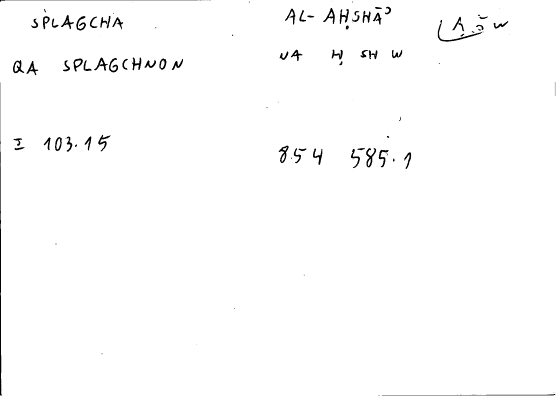 SPLAGCHA AL-AḤSHĀʾ
QA SPLAGCHNON NA Ḥ SH W
I 103.15 854 585.1